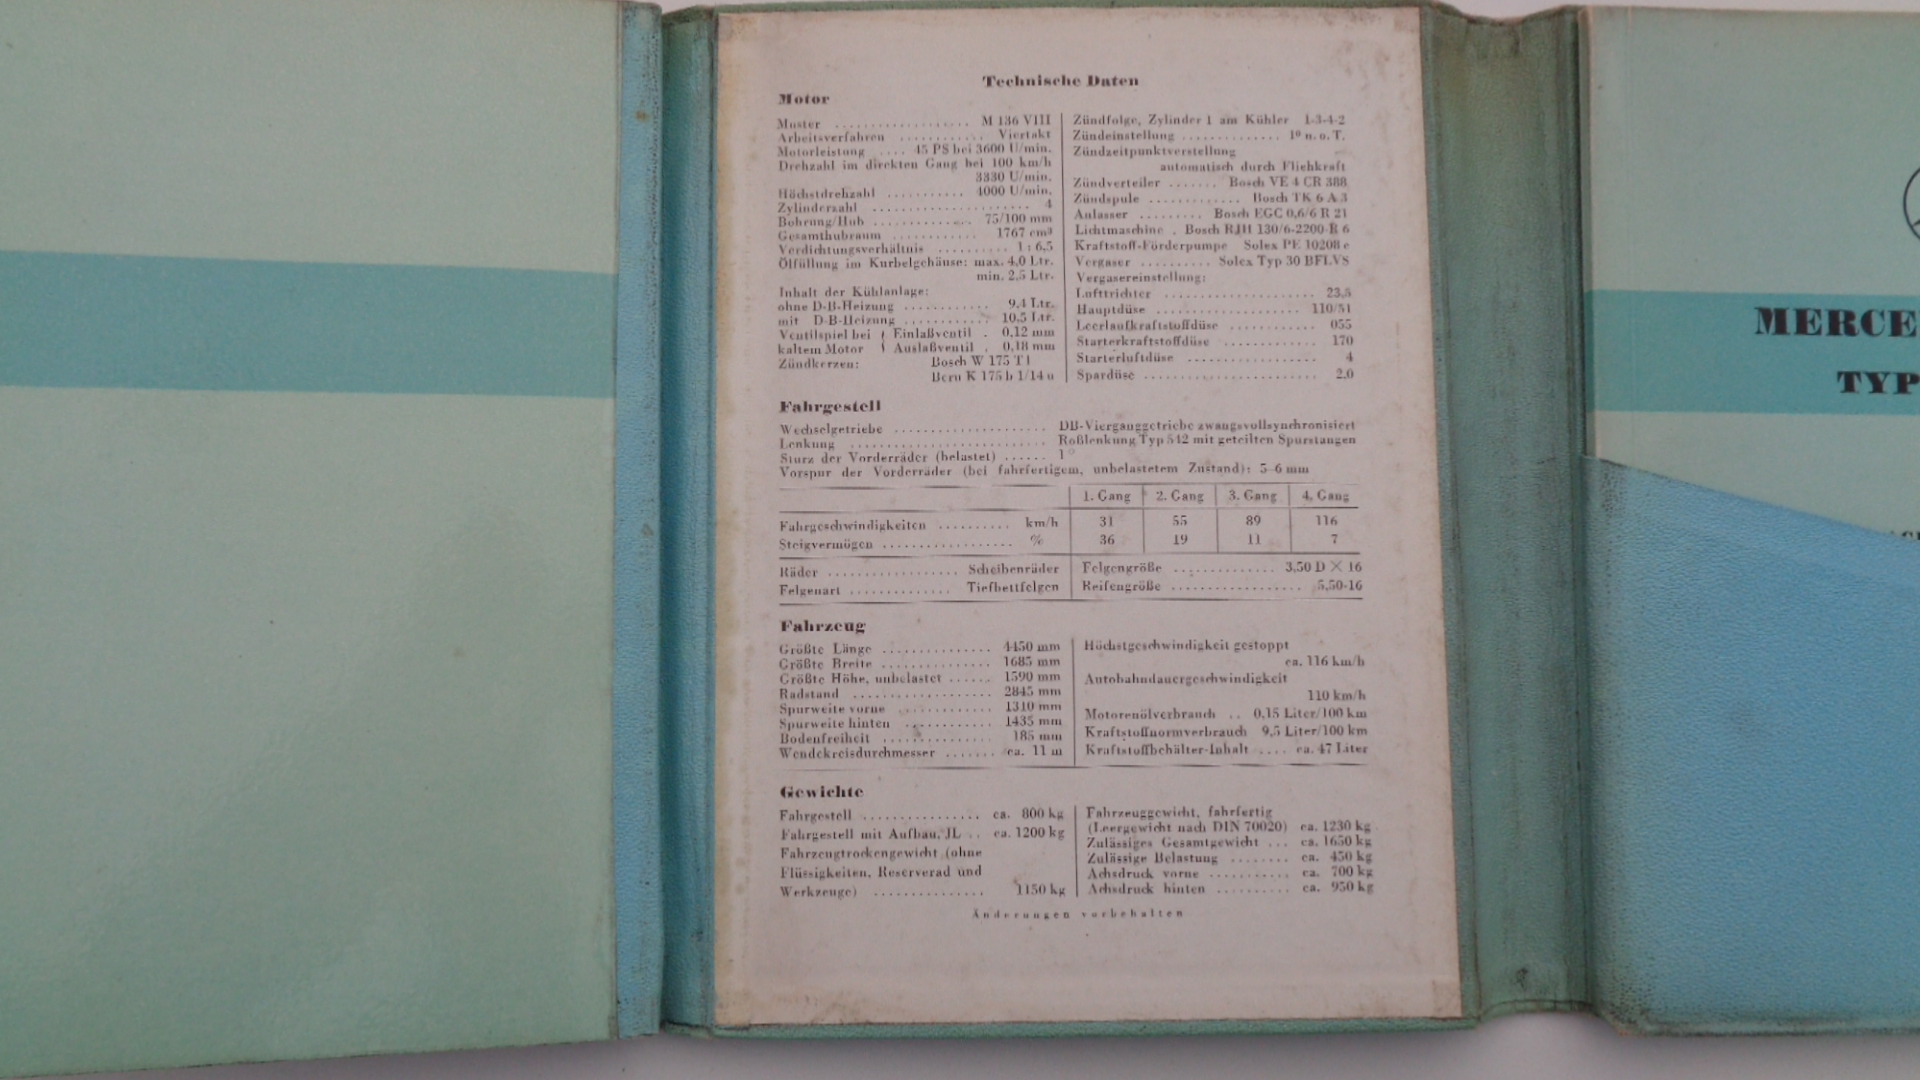 Technische Daten
Motor
Muster .................. M 136 VIII
Arbeitsverfahren ........... Viertakt
Motorleistung .... 45 PS bei 3600 U/min.
Drehzahl im direkten Gang bei 100 km/h
3330 U/min.
Höchstdrehzahl ........... 4000 U/min.
Zylinderzahl ..................... 4
Bohrung/Hub .............. 75/100 mm
Gesamthubraum ............ 1767 cm³
Verdichtungsverhältnis .......... 1 : 6,5
Ölfüllung im Kurbelgehäuse: max. 4,0 Ltr.
min. 2,5 Ltr.
Inhalt der Kühlanlage:
ohne D-B-Heizung ............ 9,4 Ltr.
mit D-B-Heizung ............ 10,5 Ltr.
Ventilspiel bei { Einlaßventil . 0,12 mm
kaltem Motor { Auslaßventil . 0,18 mm
Zündkerzen: Bosch W 175 T 1
Beru K 175 b 1/14 u
Zündfolge, Zylinder 1 am Kühler 1-3-4-2
Zündeinstellung .............. 1° n. o. T.
Zündzeitpunktverstellung
automatisch durch Fliehkraft
Zündverteiler ....... Bosch VE 4 CR 388
Zündspule ............. Bosch TK 6 A 3
Anlasser ......... Bosch EGC 0,6/6 R 21
Lichtmaschine . Bosch RJH 130/6-2200 R 6
Kraftstoff-Förderpumpe Solex PE 10208 e
Vergaser .......... Solex Typ 30 BFLVS
Vergasereinstellung:
Lufttrichter ...................... 23,5
Hauptdüse ..................... 110/51
Leerlaufkraftstoffdüse ............ 055
Starterkraftstoffdüse ............. 170
Starterluftdüse ................... 4
Spardüse ......................... 2,0
Fahrgestell
Wechselgetriebe ...................... DB-Vierganggetriebe zwangsvollsynchronisiert
Lenkung ............................ Roßlenkung Typ 542 mit geteilten Spurstangen
Sturz der Vorderräder (belastet) ...... 1°
Vorspur der Vorderräder (bei fahrfertigem, unbelastetem Zustand): 5–6 mm
1. Gang 2. Gang 3. Gang 4. Gang
Fahrgeschwindigkeiten .......... km/h 31 55 89 116
Steigvermögen .................. % 36 19 11 7
Räder .................. Scheibenräder
Felgenart .............. Tiefbettfelgen
Felgengröße ............. 3,50 D × 16
Reifengröße .................. 5,50-16
Fahrzeug
Größte Länge ............... 4450 mm
Größte Breite ............... 1685 mm
Größte Höhe, unbelastet ...... 1590 mm
Radstand ................... 2845 mm
Spurweite vorne ............. 1310 mm
Spurweite hinten ............ 1435 mm
Bodenfreiheit ............... 185 mm
Wendekreisdurchmesser ....... ca. 11 m
Höchstgeschwindigkeit gestoppt
ca. 116 km/h
Autobahndauergeschwindigkeit
110 km/h
Motorenölverbrauch .. 0,15 Liter/100 km
Kraftstoffnormverbrauch 9,5 Liter/100 km
Kraftstoffbehälter-Inhalt .... ca. 47 Liter
Gewichte
Fahrgestell ................ ca. 800 kg
Fahrgestell mit Aufbau, JL .. ca. 1200 kg
Fahrzeugtrockengewicht (ohne
Flüssigkeiten, Reserverad und
Werkzeuge) ............... 1150 kg
Fahrzeuggewicht, fahrfertig
(Leergewicht nach DIN 70020) ca. 1230 kg
Zulässiges Gesamtgewicht ... ca. 1650 kg
Zulässige Belastung ........ ca. 450 kg
Achsdruck vorne ........... ca. 700 kg
Achsdruck hinten .......... ca. 950 kg
Änderungen vorbehalten
MERCE
TYP